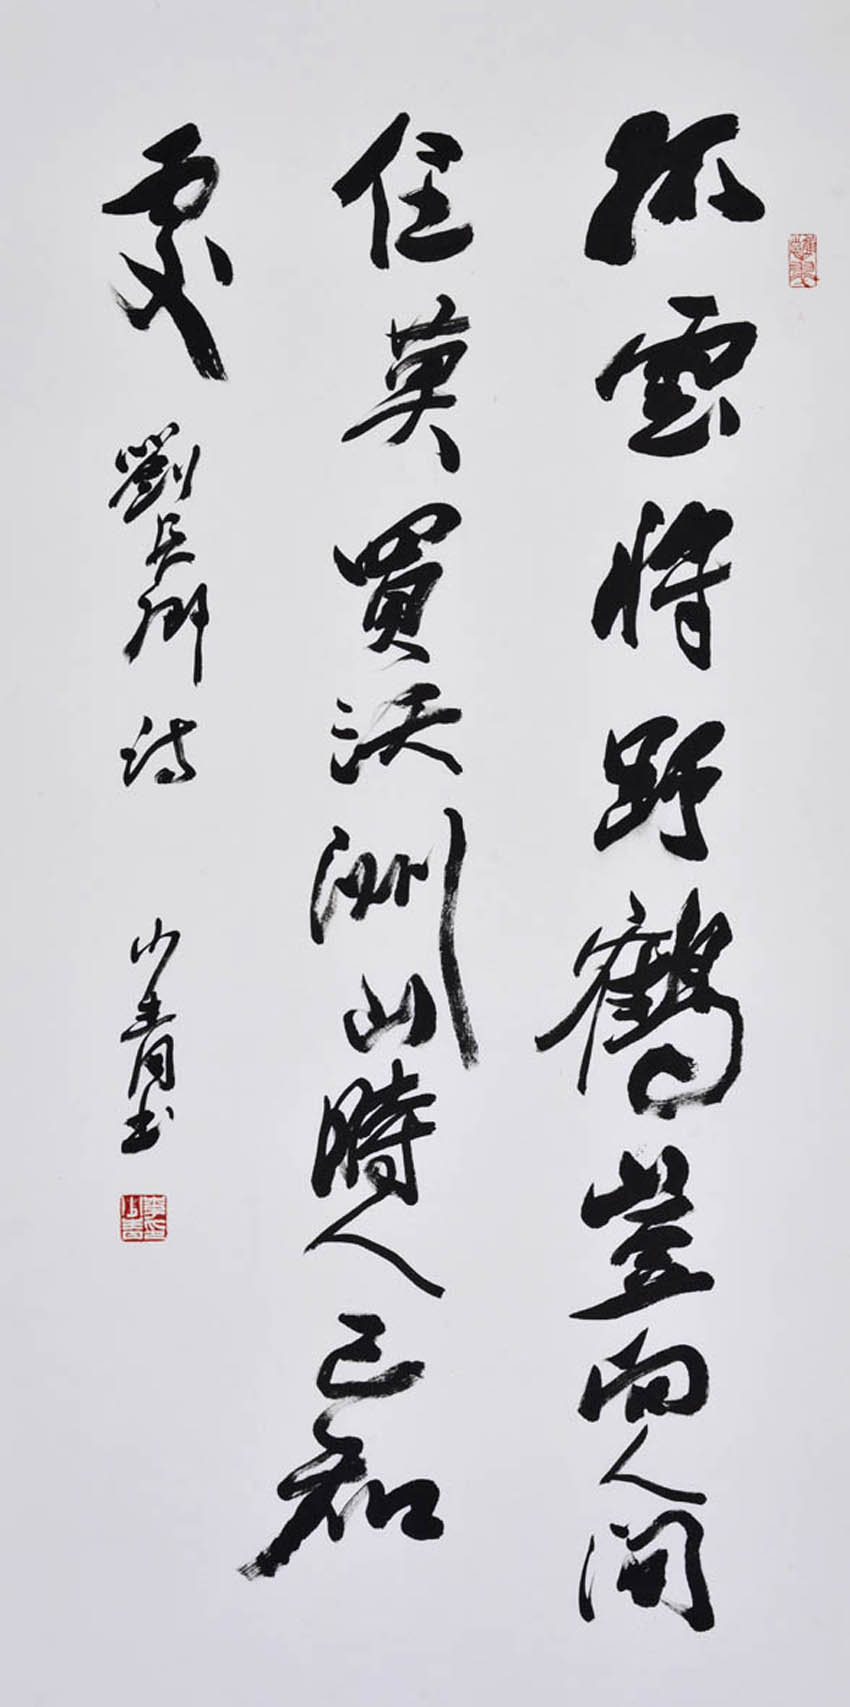 孤雲將野鶴豈向人間
住莫買沃洲山時人已知
處 劉長卿詩 少青同書